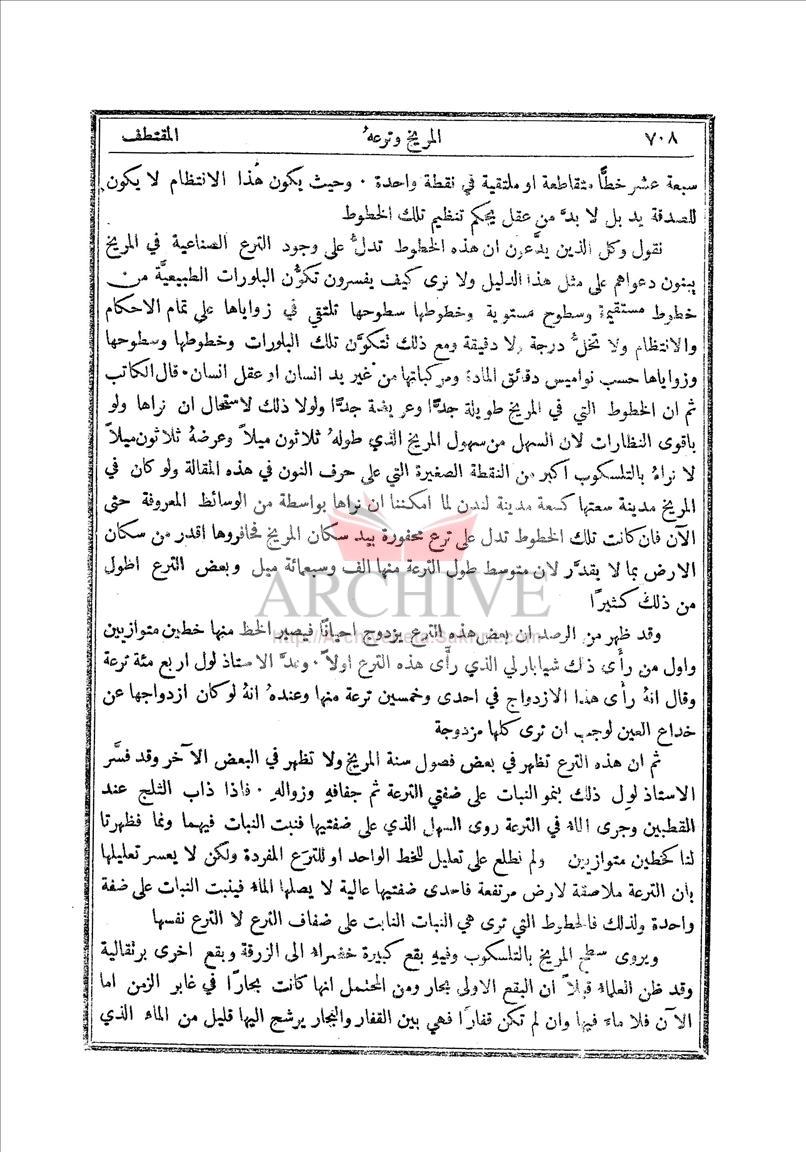 ٧٠٨ المريخ وترعهُ المقتطف
سبعة عشر خطًّا متقاطعة او ملتقية في نقطة واحدة · وحيث يكون هذا الانتظام لا يكون
للصدفة يد بل لا بدَّ من عقل يحكم تنظيم تلك الخطوط
نقول وكل الذين يدَّعون ان هذه الخطوط تدلُّ على وجود الترع الصناعية في المريخ
يبنون دعواهم على مثل هذا الدليل ولا نرى كيف يفسرون تكوُّن البلورات الطبيعيَّة من
خطوط مستقيمة وسطوح مستوية وخطوطها سطوحها تلتقي في زواياها على تمام الاحكام
والانتظام ولا تخلُّ درجة ولا دقيقة ومع ذلك تتكوَّن تلك البلورات وخطوطها وسطوحها
وزواياها حسب نواميس دقائق المادة ومركباتها من غير يد انسان او عقل انسان· قال الكاتب
ثم ان الخطوط التي في المريخ طويلة جدًّا وعريضة جدًّا ولولا ذلك لاستحال ان نراها ولو
باقوى النظارات لان السهل من سهول المريخ الذي طولهُ ثلاثون ميلاً وعرضهُ ثلاثون ميلاً
لا نراهُ بالتلسكوب اكبر من النقطة الصغيرة التي على حرف النون في هذه المقالة ولو كان في
المريخ مدينة سعتها كسعة مدينة لندن لما امكننا ان نراها بواسطة من الوسائط المعروفة حتى
الآن فان كانت تلك الخطوط تدل على ترع محفورة بيد سكان المريخ فحافروها اقدر من سكان
الارض بما لا يقدَّر لان متوسط طول الترعة منها الف وسبعمائة ميل وبعض الترع اطول
من ذلك كثيرًا
ARCHIVE
وقد ظهر من الرصد ان بعض هذه الترع يزدوج احيانًا فيصير الخط منها خطين متوازيين
واول من رأى ذلك شيابارلي الذي رأى هذه الترع اولاً · وعدَّ الاستاذ لول اربع مئة ترعة
وقال انهُ رأى هذا الازدواج في احدى وخمسين ترعة منها وعندهُ انهُ لو كان ازدواجها عن
خداع العين لوجب ان ترى كلها مزدوجة
ثم ان هذه الترع تظهر في بعض فصول سنة المريخ ولا تظهر في البعض الآخر وقد فسَّر
الاستاذ لول ذلك بنمو النبات على ضفتي الترعة ثم جفافهِ وزوالهِ · فاذا ذاب الثلج عند
القطبين وجرى الماء في الترعة روى السهل الذي على ضفتيها فنبت النبات فيهما ونما فظهرتا
لنا كخطين متوازيين ولم نطلع على تعليل للخط الواحد او للترَع المفردة ولكن لا يعسر تعليلها
بان الترعة ملاصقة لارض مرتفعة فاحدى ضفتيها عالية لا يصلها الماء فينبت النبات على ضفة
واحدة ولذلك فالخطوط التي ترى هي النبات النابت على ضفاف الترع لا الترع نفسها
ويروى سطح المريخ بالتلسكوب وفيهِ بقع كبيرة خضراء الى الزرقة وبقع اخرى برتقالية
وقد ظن العلماء قبلاً ان البقع الاولى بحار ومن المحتمل انها كانت بحارًا في غابر الزمن اما
الآن فلا ماء فيها وان لم تكن قفارًا فهي بين القفار والبحار يرشح اليها قليل من الماء الذي